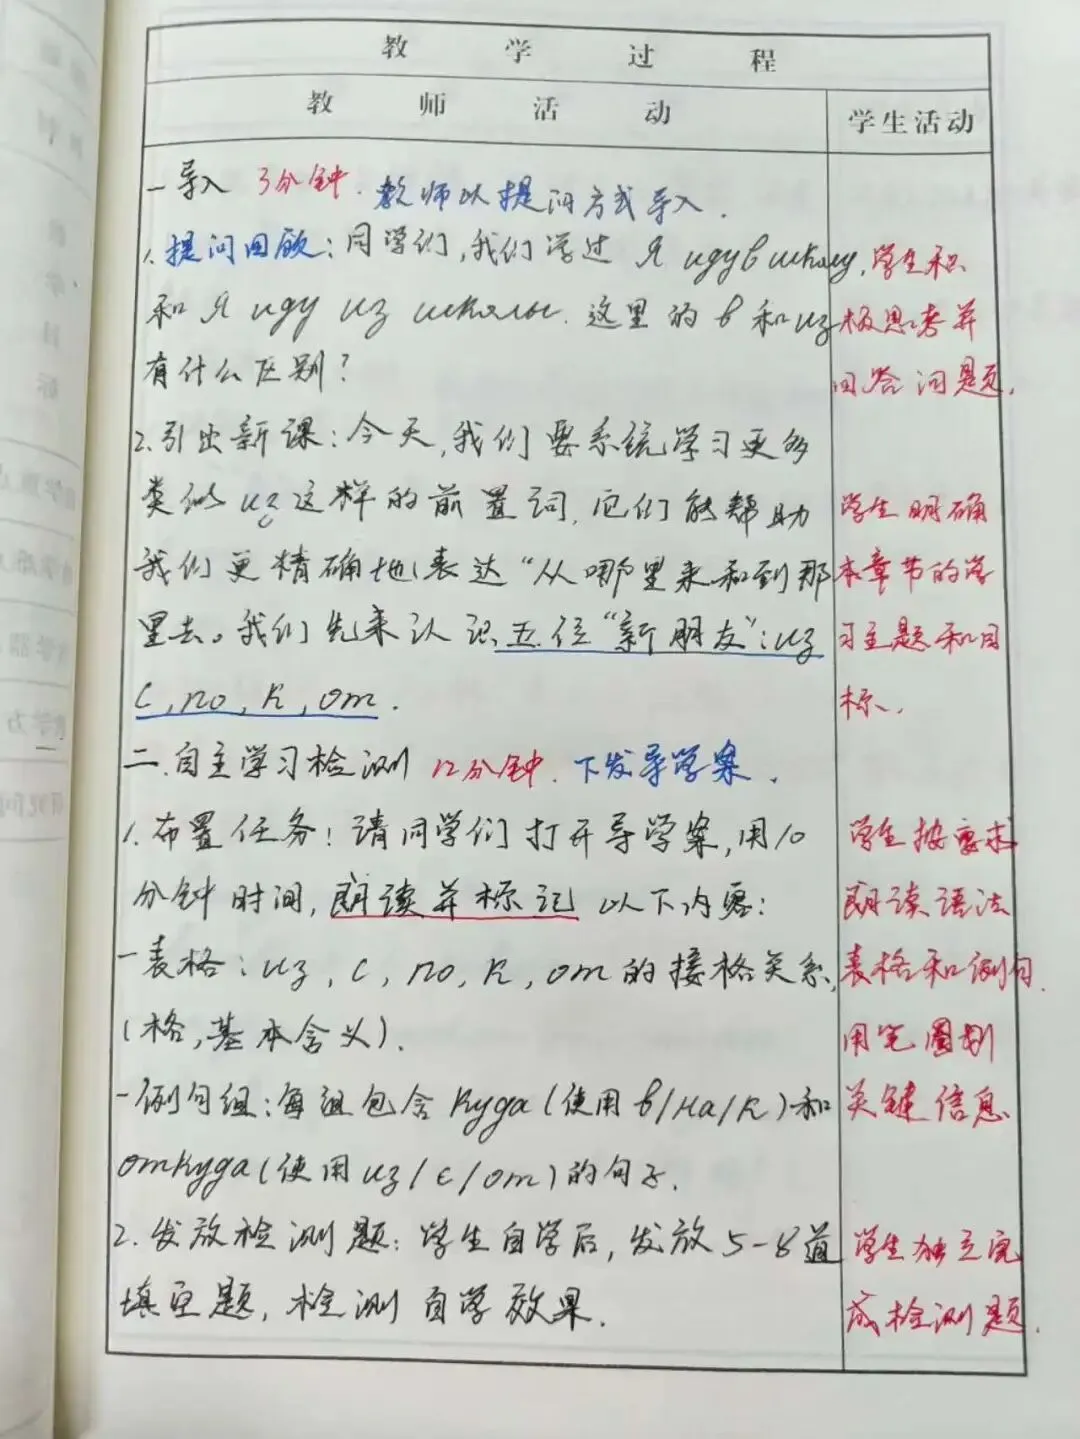 教学过程
教师活动
学生活动
一导入 3分钟. 教师以提问方式导入.
1. 提问回顾: 同学们, 我们学过 Я иду в школу,
和 Я иду из школы. 这里的 в 和 из
有什么区别?
学生积
极思考并
回答问题.
2. 引出新课: 今天, 我们要系统学习更多
类似 из 这样的前置词, 它们能帮助
我们更精确地表达“从哪里来和到那
里去。我们先来认识五位“新朋友”: из
с, по, к, от.
学生明确
本章节的学
习主题和目
标.
二.自主学习检测 12分钟. 下发导学案.
1. 布置任务: 请同学们打开导学案, 用10
分钟时间, 朗读并标记 以下内容:
-表格: из, с, по, к, от的接格关系,
(格, 基本含义).
-例句组: 每组包含 куда (使用 в/на/к) 和
откуда (使用 из/с/от) 的句子.
学生按要求
朗读语法
表格和例句.
用笔圈划
关键信息
2. 发放检测题: 学生自学后, 发放5-8道
填空题, 检测自学效果.
学生独立完
成检测题.